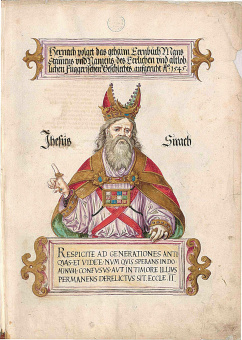 Hernach volget das gehaim Eernbuch Mans
Stammens und Namens, des Eerlichen und altlob
lichen Fuggerischen Geschlechts. aufgericht A° 1545.
Jhesus Sirach
RESPICITE AD GENERATIONES ANTI
QVAS·ET VIDETE: NVM QVIS SPERANS IN DO
MINVM: CONFVSVS·AVT IN TIMORE ILLIVS
PERMANENS DERELICTVS SIT. ECCLE. II